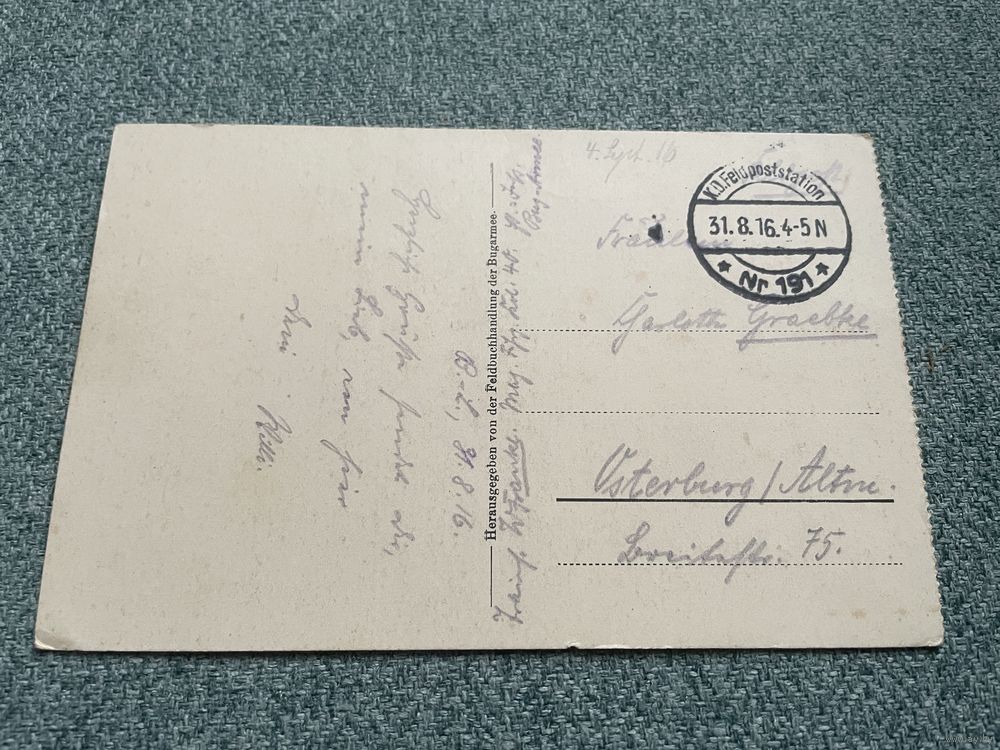 4. Sept. 16
K.D. Feldpoststation
31.8.16.4-5 N
Nr 191
Fräulein
Graebke
Osterburg/Altm.
Breitestr. 75.
Herausgegeben von der Feldbuchhandlung der Bugarmee.
Bug Armee.
31.8.16.
Herzlich Grüße sendet dir,
mein Lieb, von hier
Dein
Willi.